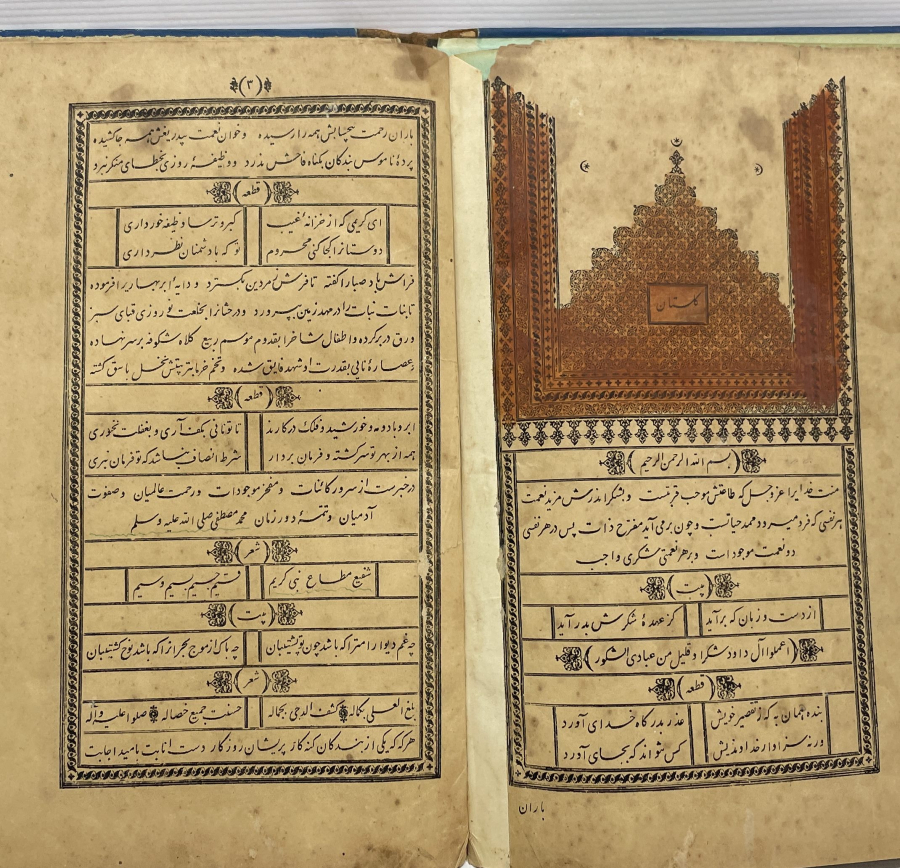 گلستان
بسم الله الرحمن الرحیم
منت خدایرا عزوجل که طاعتش موجب قربتست و بشکر اندرش مزید نعمت
هر نفسی که فرو میرود ممد حیاتست و چون بر می آید مفرح ذات پس در هر نفسی
دو نعمت موجود است و بر هر نعمتی شکری واجب
بیت
از دست و زبان که برآید کز عهدهٔ شکرش بدر آید
اعملوا آل داود شکرا و قلیل من عبادی الشکور
قطعه
بنده همان به که ز تقصیر خویش عذر بدرگاه خدای آورد
ورنه سزاوار خداوندیش کس نتواند که بجای آورد
باران
(۳)
باران رحمت بیحسابش همه را رسیده و خوان نعمت بیدریغش همه جا کشیده
پردهٔ ناموس بندگان بگناه فاحش ندرد و وظیفهٔ روزی بخطای منکر نبرد
قطعه
ای کریمی که از خزانهٔ غیب گبر و ترسا وظیفه خور داری
دوستانرا کجا کنی محروم تو که با دشمنان نظر داری
فراش باد صبا را گفته تا فرش زمردین بگسترد و دایهٔ ابر بهاریرا فرموده
تا بنات نبات را در مهد زمین بپرورد و درختانرا بخلعت نوروزی قبای سبز
ورق در بر کرده و اطفال شاخرا بقدوم موسم ربیع کلاه شکوفه بر سر نهاده
عصارهٔ نایی بقدرت او شهد فایق شده و تخم خرما بتربیتش نخل باسق گشته
قطعه
ابر و باد و مه و خورشید و فلک در کارند تا تو نانی بکف آری و بغفلت نخوری
همه از بهر تو سرگشته و فرمان بردار شرط انصاف نباشد که تو فرمان نبری
در خبر ست از سرور کائنات و مفخر موجودات و رحمت عالمیان و صفوت
آدمیان و تتمهٔ دور زمان محمد مصطفی صلی الله علیه وسلم
شعر
شفیع مطاع نبی کریم قسیم جسیم بسیم وسیم
بیت
چه غم دیوار امترا که باشد چون تو پشتیبان چه باک از موج بحر آنرا که باشد نوح کشتیبان
شعر
بلغ العلی بکماله کشف الدجی بجماله حسنت جمیع خصاله صلوا علیه و آله
هر گه که یکی از بندگان گنه کار پریشان روزگار دست انابت بامید اجابت